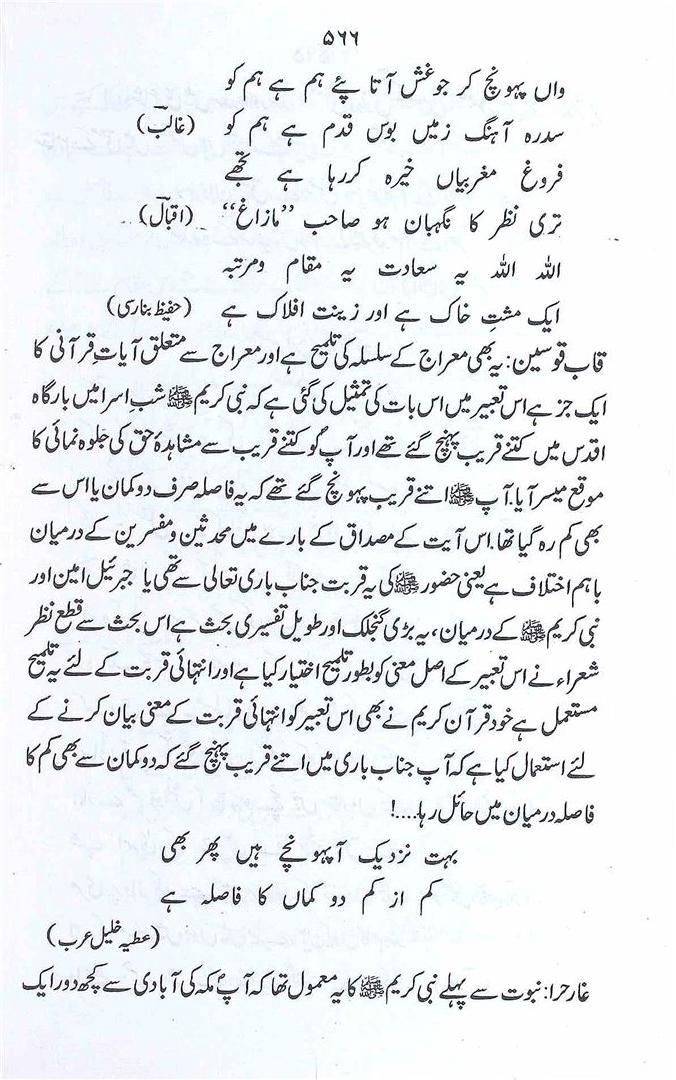 ۵۶۶
واں پہونچ کر جو غش آتا پۓ ہم ہے ہم کو
سدرہ آہنگ زمیں بوس قدم ہے ہم کو (غالب)
فروغ مغربیاں خیرہ کررہا ہے تجھے
تری نظر کا نگہبان ہو صاحب ’’مازاغ‘‘ (اقبال)
اللہ اللہ یہ سعادت یہ مقام ومرتبہ
ایک مشتِ خاک ہے اور زینت افلاک ہے (حفیظ بنارسی)
قاب قوسین: یہ بھی معراج کے سلسلہ کی تلمیح ہے اور معراج سے متعلق آیاتِ قرآنی کا
ایک جز ہے اس تعبیر میں اس بات کی تمثیل کی گئی ہے کہ نبی کریم ﷺ شب اسرا میں بارگاہ
اقدس میں کتنے قریب پہنچ گئے تھے اور آپؐ کو کتنے قریب سے مشاہدۂ حق کی جلوہ نمائی کا
موقع میسر آیا. آپ ﷺ اتنے قریب پہونچ گئے تھے کہ یہ فاصلہ صرف دو کمان یا اس سے
بھی کم رہ گیا تھا. اس آیت کے مصداق کے بارے میں محدثین و مفسرین کے درمیان
باہم اختلاف ہے یعنی حضور ﷺ کی یہ قربت جناب باری تعالی سے تھی یا جبرئیل امین اور
نبی کریم ﷺ کے درمیان، یہ بڑی گنجلک اور طویل تفسیری بحث ہے اس بحث سے قطع نظر
شعراء نے اس تعبیر کے اصل معنی کو بطور تلمیح اختیار کیا ہے اور انتہائی قربت کے لئے یہ تلمیح
مستعمل ہے خود قرآن کریم نے بھی اس تعبیر کو انتہائی قربت کے معنی بیان کرنے کے
لئے استعمال کیا ہے کہ آپ جناب باری میں اتنے قریب پہنچ گئے کہ دو کمان سے بھی کم کا
فاصلہ درمیان میں حائل رہا....!
بہت نزدیک آپہونچے ہیں پھر بھی
کم از کم دو کماں کا فاصلہ ہے
(عطیہ خلیل عرب)
غار حرا: نبوت سے پہلے نبی کریم ﷺ کا یہ معمول تھا کہ آپؐ مکہ کی آبادی سے کچھ دور ایک